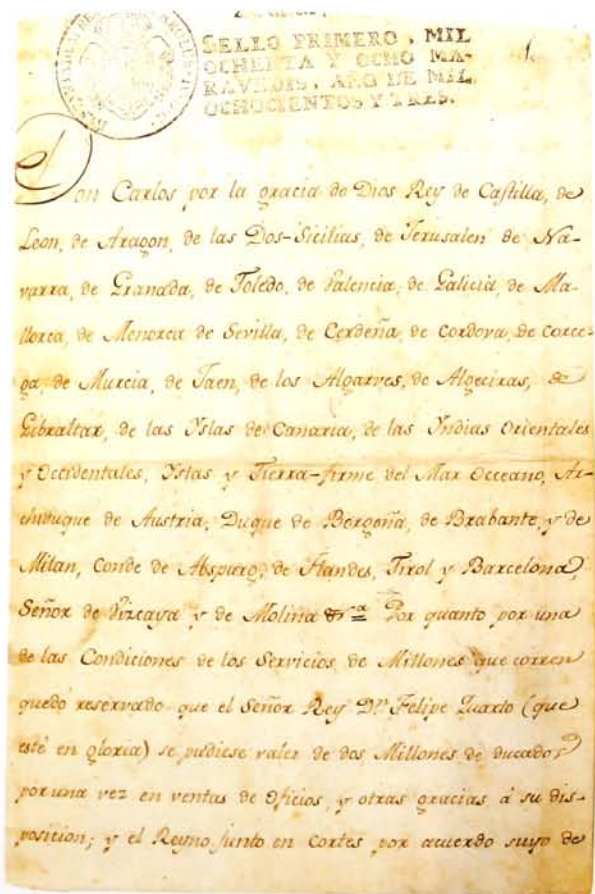 SELLO PRIMERO, MIL
OCHENTA Y OCHO MA-
RAVEDIS, AÑO DE MIL
OCHOCIENTOS Y TRES.
Don Carlos por la gracia de Dios Rey de Castilla, de
Leon, de Aragon, de las Dos-Sicilias, de Jerusalen de Na-
varra, de Granada, de Toledo, de Valencia, de Galicia, de Ma-
llorca, de Menorca de Sevilla, de Cerdeña, de Cordova, de Corce-
ga, de Murcia, de Jaen, de los Algarves, de Algeciras, de
Gibraltar, de las Yslas de Canaria, de las Yndias Orientales
y Occidentales, Yslas y Tierra-firme del Mar Occeano, Ar-
chiduque de Austria, Duque de Borgoña, de Brabante, y de
Milan, Conde de Abspurg, de Flandes, Tirol y Barcelona,
Señor de Vizcaya y de Molina &ª Por quanto por una
de las Condiciones de los Servicios de Millones que corren
quedó reservado que el Señor Rey Dn Felipe Quarto (que
esté en gloria) se pudiese valer de dos Millones de ducados
por una vez en ventas de Oficios, y otras gracias á su dis-
posicion; y el Reyno junto en Cortes por acuerdo suyo de